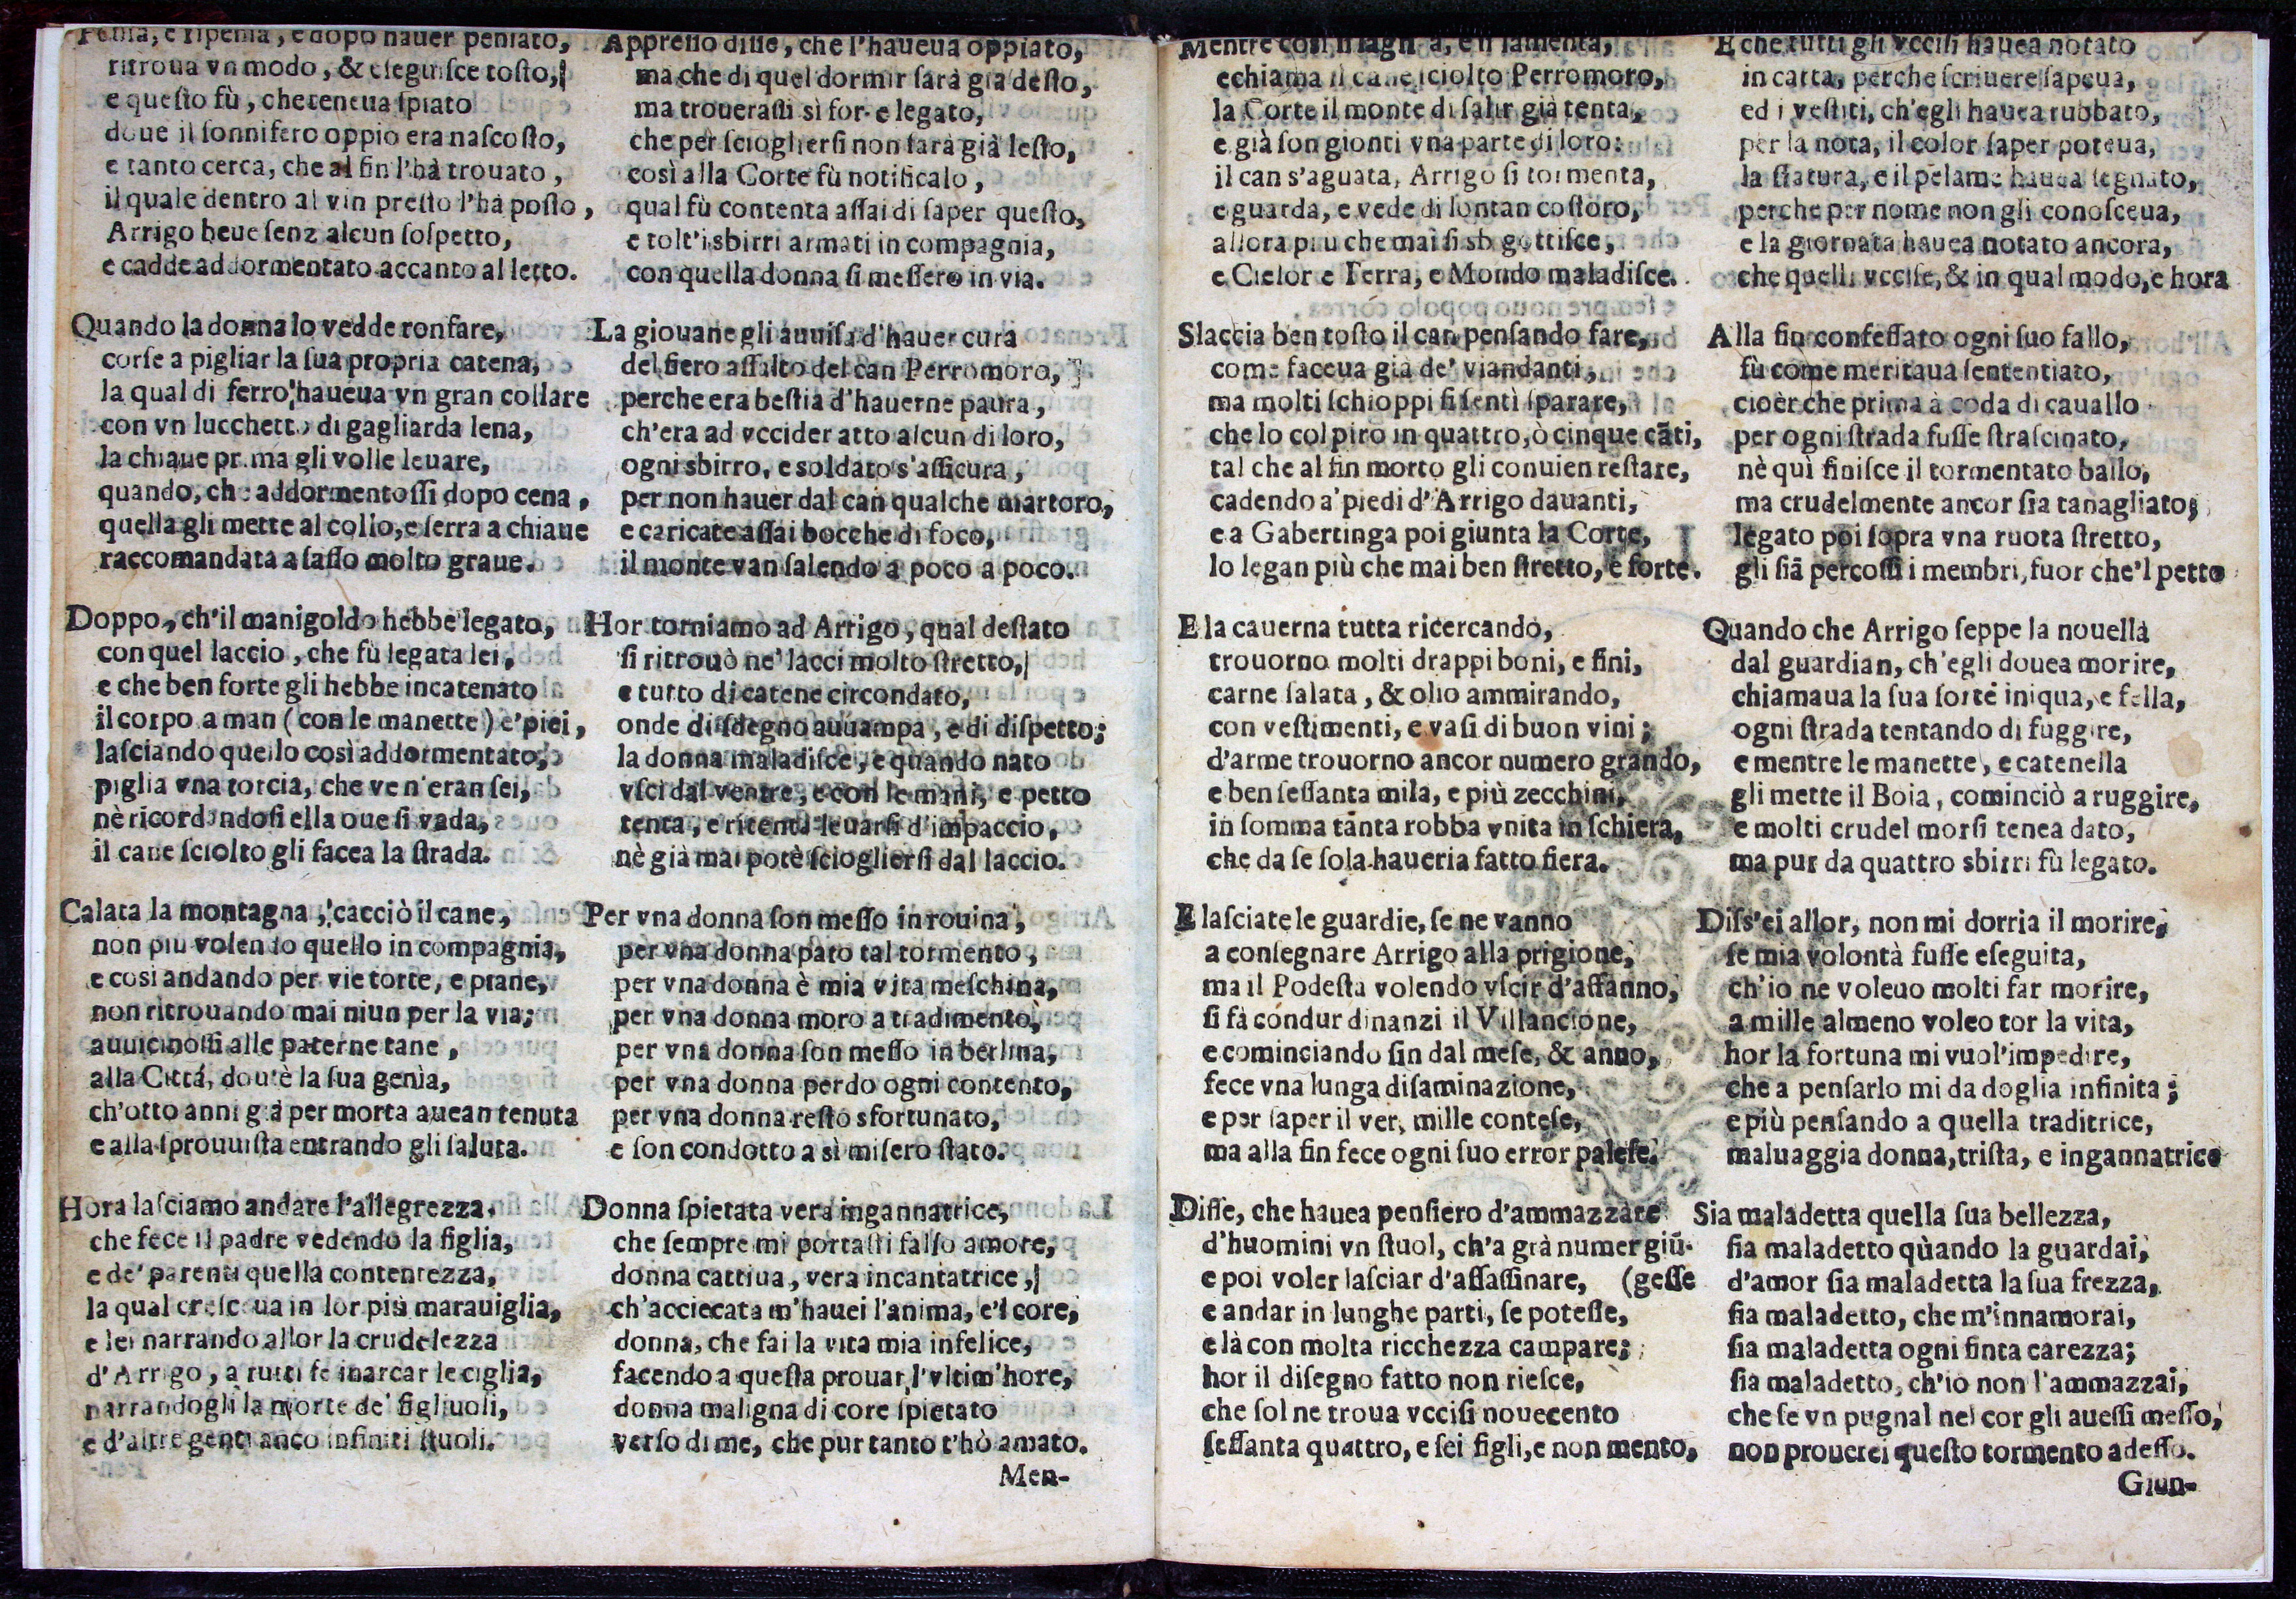 Pensa, e ripensa, e dopo hauer pensato,
ritroua vn modo, & eseguisce tosto,
e questo fù, che teneua spiato
doue il sonnifero oppio era nascosto,
e tanto cerca, che al fin l'hà trouato,
il quale dentro al vin presto l'hà posto,
Arrigo beue senz alcun sospetto,
e cadde addormentato accanto al letto.
Quando la donna lo vedde ronfare,
corse a pigliar la sua propria catena,
la qual di ferro haueua vn gran collare
con vn lucchetto di gagliarda lena,
la chiaue prima gli volle leuare,
quando, che addormentossi dopo cena,
quella gli mette al collo, e serra a chiaue
raccomandata a sasso molto graue.
Doppo, ch'il manigoldo hebbe legato,
con quel laccio, che fù legata lei,
e che ben forte gli hebbe incatenato
il corpo a man (con le manette) e' piei,
lasciando quello così addormentato,
piglia vna torcia, che ve n'eran sei,
nè ricordandosi ella oue si vada,
il cane sciolto gli facea la strada.
Calata la montagna, cacciò il cane,
non piu volendo quello in compagnia,
e così andando per vie torte, e piane,
non ritrouando mai niun per la via,
auuicinossi alle paterne tane,
alla Città, dou'è la sua genìa,
ch'otto anni già per morta auean tenuta
e alla sprouuista entrando gli saluta.
Hora lasciamo andare l'allegrezza,
che fece il padre vedendo la figlia,
e de' parenti quella contentezza,
la qual cresceua in lor più marauiglia,
e lei narrando allor la crudelezza
d'Arrigo, a tutti fè inarcar le ciglia,
narrandogli la morte de' figliuoli,
e d'altre genti anco infiniti stuoli.
Appresso disse, che l'haueua oppiato,
ma che di quel dormir sarà già desto,
ma trouerassi sì forte legato,
che per sciogliersi non sarà già lesto,
così alla Corte fù notificalo,
qual fù contenta assai di saper questo,
e tolt'i sbirri armati in compagnia,
con quella donna si messero in via.
La giouane gli auuisa d'hauer cura
del fiero assalto del can Perromoro,
perche era bestia d'hauerne paura,
ch'era ad vccider atto alcun di loro,
ogni sbirro, e soldato s'assicura,
per non hauer dal can qualche martoro,
e caricate assai bocche di foco,
il monte van salendo a poco a poco.
Hor torniamo ad Arrigo, qual destato
si ritrouò ne' lacci molto stretto,
e tutto di catene circondato,
onde di sdegno auuampa, e di dispetto;
la donna maladisce, e quando nato
vscì dal ventre, e con le mani, e petto
tenta, e ritenta leuarsi d'impaccio,
nè già mai potè sciogliersi dal laccio.
Per vna donna son messo in rouina,
per vna donna pato tal tormento,
per vna donna è mia vita meschina,
per vna donna moro a tradimento,
per vna donna son messo in berlina,
per vna donna perdo ogni contento,
per vna donna resto sfortunato,
e son condotto a sì misero stato.
Donna spietata vera ingannatrice,
che sempre mi portasti falso amore,
donna cattiua, vera incantatrice,
ch'acciecata m'hauei l'anima, e'l core,
donna, che fai la vita mia infelice,
facendo a questa prouar l'vltim'hore,
donna maligna di core spietato
verso di me, che pur tanto t'hò amato.
Men-
Mentre così si lagna, e si lamenta,
e chiama il cane sciolto Perromoro,
la Corte il monte di salir già tenta,
e già son gionti vna parte di loro:
il can s'aguata, Arrigo si tormenta,
e guarda, e vede di lontan costoro,
allora piu che mai si sbigottisce,
e Cielo e Terra, e Mondo maladisce.
Slaccia ben tosto il can pensando fare,
come faceua già de' viandanti,
ma molti schioppi si sentì sparare,
che lo colpiro in quattro, ò cinque cāti,
tal che al fin morto gli conuien restare,
cadendo a' piedi d'Arrigo dauanti,
e a Gabertinga poi giunta la Corte,
lo legan più che mai ben stretto, e forte.
E la cauerna tutta ricercando,
trouorno molti drappi boni, e fini,
carne salata, & olio ammirando,
con vestimenti, e vasi di buon vini;
d'arme trouorno ancor numero grando,
e ben sessanta mila, e più zecchini,
in somma tanta robba vnita in schiera,
che da se sola haueria fatto fiera.
E lasciate le guardie, se ne vanno
a consegnare Arrigo alla prigione,
ma il Podestà volendo vscir d'affanno,
si fà condur dinanzi il Villancione,
e cominciando sin dal mese, & anno,
fece vna lunga disaminazione,
e per saper il ver, mille contese,
ma alla fin fece ogni suo error palese.
Disse, che hauea pensiero d'ammazzare
d'huomini vn stuol, ch'a già numer giū-
e poi voler lasciar d'assassinare, (gesse
e andar in lunghe parti, se potesse,
e là con molta ricchezza campare;
hor il disegno fatto non riesce,
che sol ne troua vccisi nouecento
sessanta quattro, e sei figli, e non mento,
E che tutti gli vccisi hauea notato
in carta, perche scriuere sapeua,
ed i vestiti, ch'egli hauea rubbato,
per la nota, il color saper poteua,
la statura, e il pelame hauea segnato,
perche per nome non gli conosceua,
e la giornata hauea notato ancora,
che quelli vccise, & in qual modo, e hora
Alla fin confessato ogni suo fallo,
fù come meritaua sentenziato,
cioè, che prima à coda di cauallo
per ogni strada fusse strascinato,
nè quì finisce il tormentato ballo,
ma crudelmente ancor sia tanagliato;
legato poi sopra vna ruota stretto,
gli siā percossi i membri, fuor che'l petto
Quando che Arrigo seppe la nouella
dal guardian, ch'egli douea morire,
chiamaua la sua sorte iniqua, e fella,
ogni strada tentando di fuggire,
e mentre le manette, e catenella
gli mette il Boia, cominciò a ruggire,
e molti crudel morsi tenea dato,
ma pur da quattro sbirri fù legato.
Diss'ei allor, non mi dorria il morire,
se mia volontà fusse eseguita,
ch'io ne voleuo molti far morire,
a mille almeno voleo tor la vita,
hor la fortuna mi vuol'impedire,
che a pensarlo mi da doglia infinita;
e più pensando a quella traditrice,
maluaggia donna, trista, e ingannatrice
Sia maladetta quella sua bellezza,
sia maladetto quando la guardai,
d'amor sia maladetta la sua frezza,
sia maladetto, che m'innamorai,
sia maladetta ogni finta carezza;
sia maladetto, ch'io non l'ammazzai,
che se vn pugnal nel cor gli auessi messo,
non prouerei questo tormento adesso.
Giun-